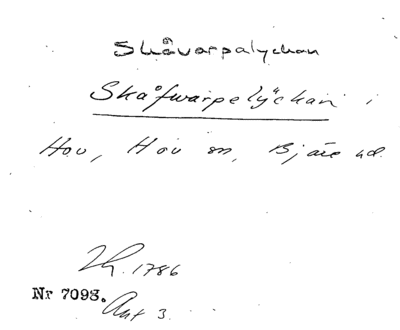 Skåvarpalyckan
Skåfwarpelÿckan i
Hov, Hov sn, Bjäre hd.
Lh. 1786
Nr 7098.
Akt 3.